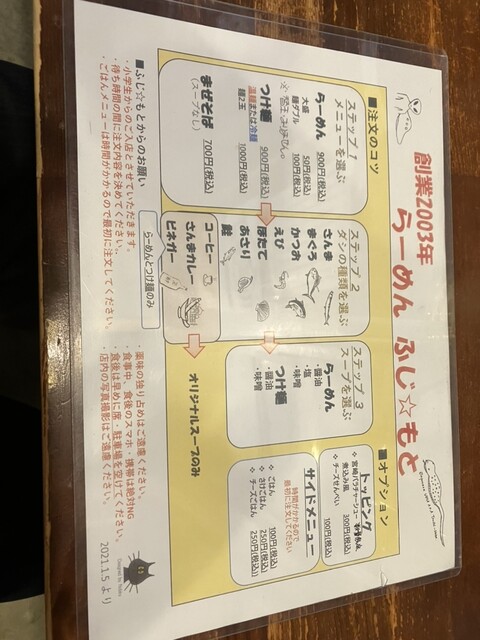 創業2003年
らーめん ふじ☆もと
■注文のコツ
ステップ 1
メニューを選ぶ
らーめん 900円(税込)
大盛 50円(税込)
麺ダブル 100円(税込)
つけ麺 900円(税込)
温麺または冷麺
麺2玉 1000円(税込)
まぜそば 700円(税込)
(スープなし)
ステップ 2
ダシの種類を選ぶ
さんま
まぐろ
かつお
えび
ほたて
あさり
鮭
コーヒー
さんまカレー
ビネガー
らーめんとつけ麺のみ
ステップ 3
スープを選ぶ
らーめん
・醤油
・塩
・味噌
つけ麺
・醤油
・味噌
オリジナルスープのみ
■オプション
トッピング
煮込み風 300円(税込)
チーズせんべい 100円(税込)
サイドメニュー
時間がかかるので
最初に注文してください
ごはん 100円(税込)
さけごはん 250円(税込)
チーズごはん 250円(税込)
■ふじ☆もとからのお願い
・小学生からのご入店とさせていただきます。
・待ち時間の間に注文内容を決めてください。
・ごはんメニューは時間がかかるので最初に注文してください。
・薬味の独り占めはご遠慮ください。
・食事中、食後のスマホ・携帯は絶対NG
・食後は早めに席・駐車場を空けてください。
・店内の写真撮影はご遠慮ください。
2021.1.5 より